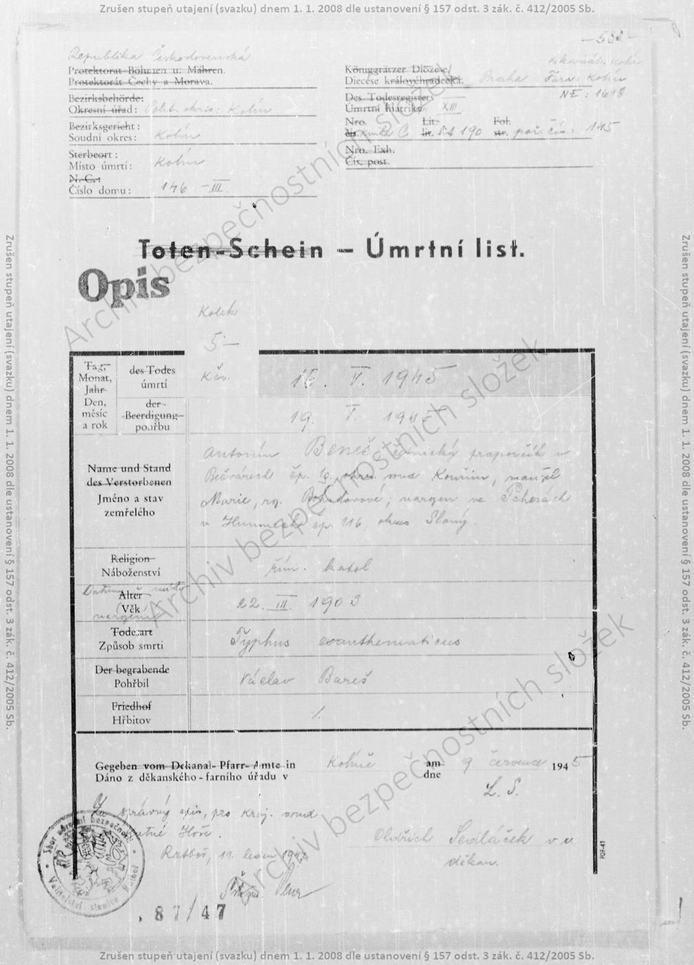 Zrušen stupeň utajení (svazku) dnem 1. 1. 2008 dle ustanovení § 157 odst. 3 zák. č. 412/2005 Sb.
Republika Československá
Protektorat Böhmen u. Mähren.
Protektorát Čechy a Morava.
Bezirksbehörde:
Okresní úřad: Kolín
Bezirksgericht:
Soudní okres: Kolín
Sterbeort:
Místo úmrtí: Kolín
N. C.:
Číslo domu: 146 - III.
Königgrätzer Diözese/
Diecése královéhradecká. Praha Kolín
NE: 1618
Des Todesregisters
Úmrtní matriky XIII
Nro. Lit. Fol.
190 str. 145
Nro. Exh.
Čís. post.
Toten-Schein – Úmrtní list.
Opis
Kolek
5-
Kčs.
Tag, Monat, Jahr
Den, měsíc a rok
des Todes
úmrtí
16. V. 1945
der Beerdigung
pohřbu
19. V. 1945
Name und Stand
des Verstorbenen
Jméno a stav
zemřelého
Antonín Beneš praporčík v
čp. 19, okres Kouřim, manžel
Marie, roz. narozen ve
v čp. 116, okres Slaný.
Religion
Náboženství
řím. katol
Alter
Věk
22. III. 1903
Todesart
Způsob smrti
Typhus exanthematicus
Der begrabende
Pohřbil
Václav Bareš
Friedhof
Hřbitov
Gegeben vom Dekanal- Pfarr- Amte in
Dáno z děkanského - farního úřadu v Kolíně
am
dne 9 července 1945
L. S.
Za správný opis, pro kraj. soud
Hoře.
Oldřich Sedláček v. r.
děkan.
Sbor národní bezpečnosti
87/47
Archiv bezpečnostních složek
Archiv bezpečnostních složek
Archiv bezpečnostních složek
Zrušen stupeň utajení (svazku) dnem 1. 1. 2008 dle ustanovení § 157 odst. 3 zák. č. 412/2005 Sb.
Zrušen stupeň utajení (svazku) dnem 1. 1. 2008 dle ustanovení § 157 odst. 3 zák. č. 412/2005 Sb.
Zrušen stupeň utajení (svazku) dnem 1. 1. 2008 dle ustanovení § 157 odst. 3 zák. č. 412/2005 Sb.